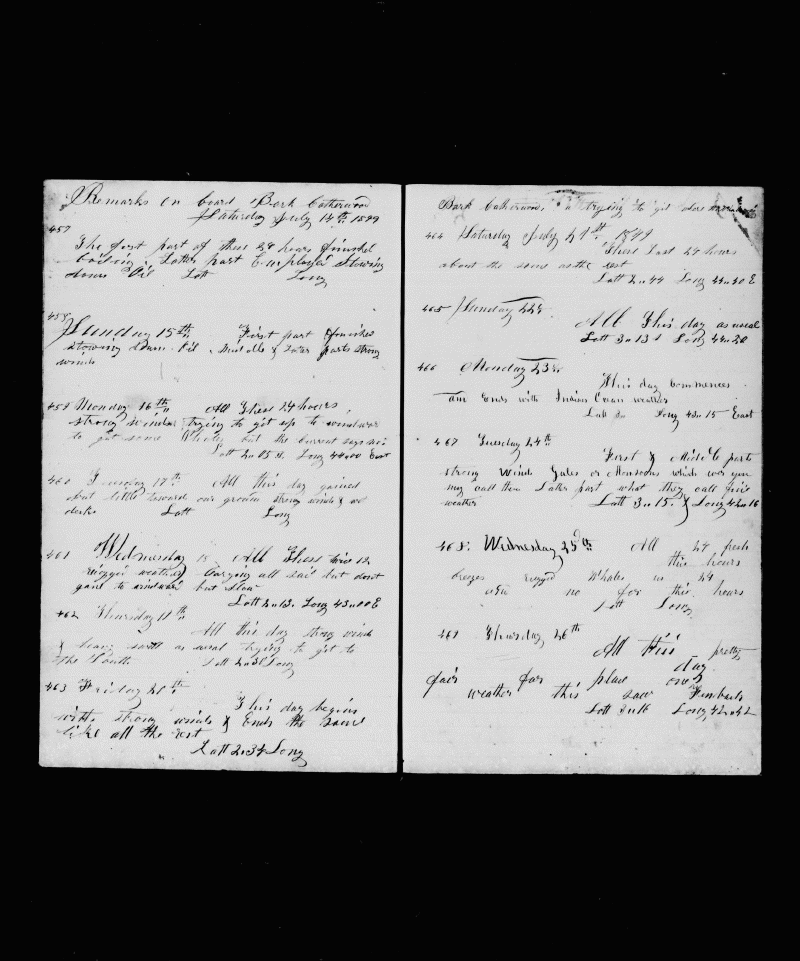 Remarks on board Bark Catherwood
Saturday July 14th 1849
457
The first part of these 24 hours finished
boiling Latter part Employed stowing
down Oil Latt Long
458
Sunday 15th First part finished
stowing down Oil Middle & Later parts strong
winds
459 Monday 16th All These 24 hours
strong winds trying to get up to windward
to get some Whales but the Current says no
Latt 2..05 S. Long 44..00 East
460 Tuesday 17th All this day gained
but little toward our ground strong winds &
Latt Long
461 Wednesday 18 All These twice 12
rugged weather Carrying all sail but dont
gain to windward but
Latt 2..13. Long 43..00 E
462 Thursday 19th
All this day strong winds
& heavy swell as usual trying to get to
the South Latt 2..30 Long
463 Friday 20th
This day begins
with strong winds & Ends the same
like all the rest
Latt 2..34 Long
Bark Catherwood, trying to git
464 Saturday July 21st 1849
These Last 24 hours
about the same as the rest
Latt 2..44 Long 44..40 E
465 Sunday 22d
All This day as usual
Latt 3..13 S Long 44..20
466 Monday 23rd
This day Commences
and Ends with Indian Ocean weather
Latt Long 43..15 East
467 Tuesday 24th
First & Middle parts
strong Wind Gales or Monsoons which ever you
may call them Latter part what they call fair
weather Latt 3..15. Long 42..16
468. Wednesday 25th All 24 fresh
this hours
breezes rugged Whales in 24
no for this hours
Latt Long
469 Thursday 26th
All this pretty
day
fair for place over
weather this saw
Latt Long 42..42